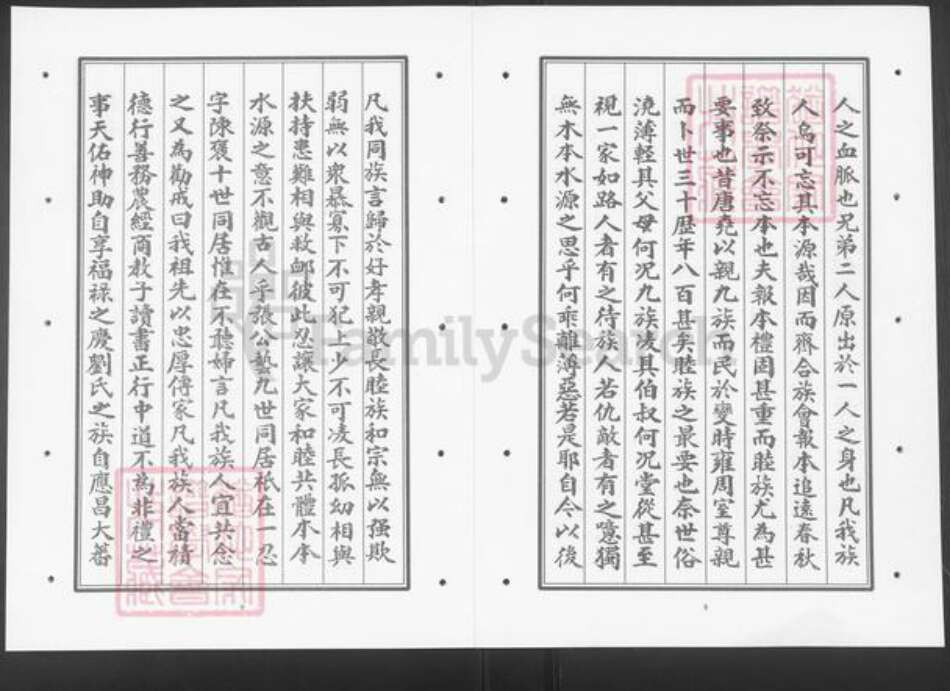 人之血脈也兄弟二人原出於一人之身也凡我族
人烏可忘其本源哉因而齊合族會報本追遠春秋
致祭示不忘本也夫報本禮固甚重而睦族尤為甚
要事也昔唐堯以親九族而民於變時雍周室尊親
而卜世三十歷年八百甚矣睦族之最要也奈世俗
澆薄輕其父母何况九族凌其伯叔何况堂從甚至
視一家如路人者有之待族人若仇敵者有之噫獨
無木本水源之思乎何乖離薄惡若是耶自今以後
凡我同族言歸於好孝親敬長睦族和宗無以强欺
弱無以衆暴寡下不可犯上少不可凌長孤幼相與
扶持患難相與救邮彼此忍讓大家和睦共體木本
水源之意不觀古人乎張公藝九世同居衹在一忍
字陳褒十世同居惟在不聽婦言凡我族人宜共念
之又為勸戒曰我祖先以忠厚傳家凡我族人當積
德行善務農經商教子讀書正行中道不為非禮之
事天佑神助自享福祿之慶劉氏之族自應昌大蕃
FamilySearch